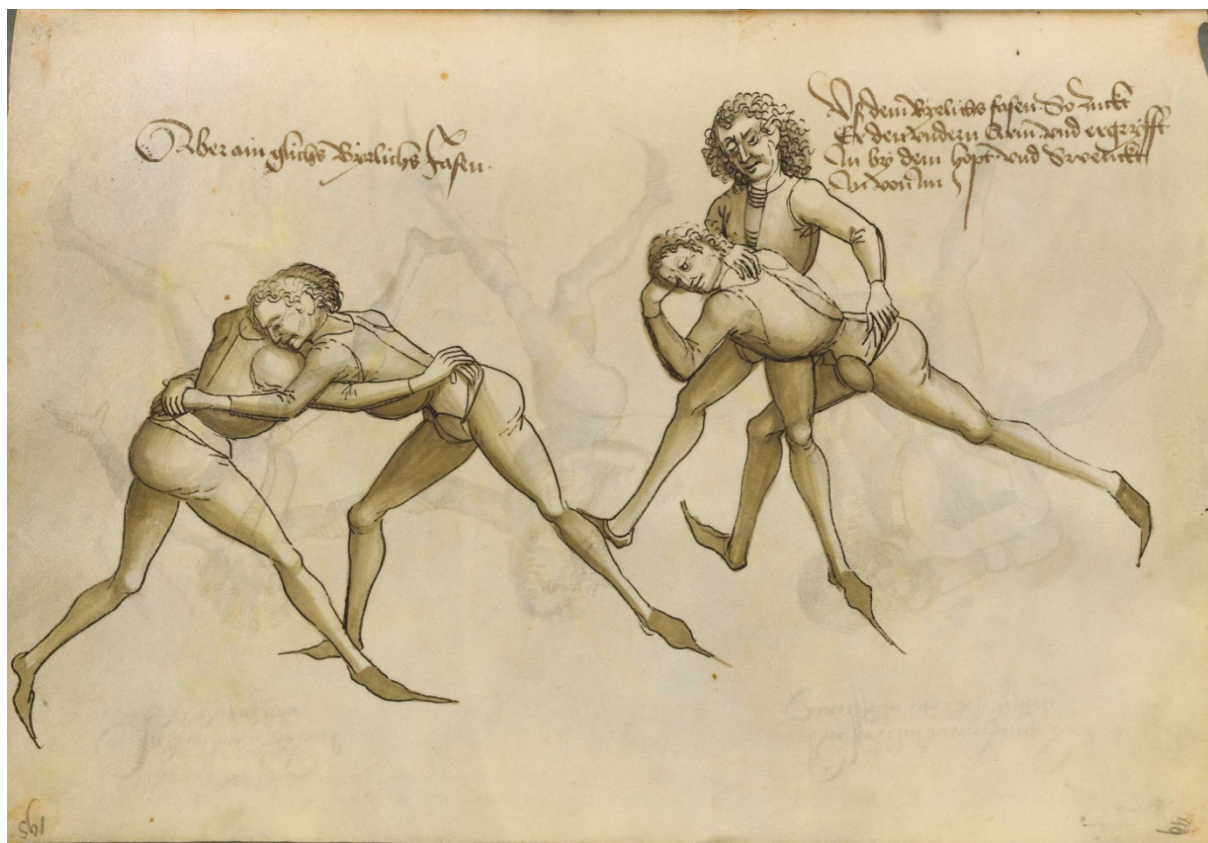 Aber ain glichs Byrlichs fasen
Vs dem Byrlichs fasen So zuckt
Er den undern Arm und ergryfft
In by dem hopt und Swenckt
In von Im